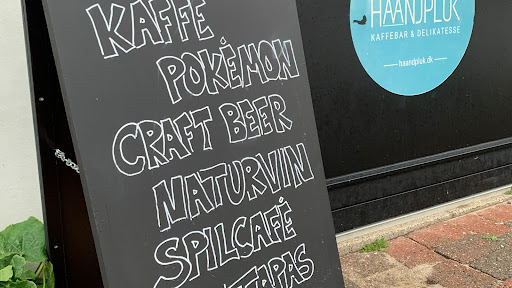 KAFFE
POKÉMON
CRAFT BEER
NATURVIN
SPILCAFÉ
TAPAS
HAANDPLUK
KAFFEBAR & DELIKATESSE
haandpluk.dk